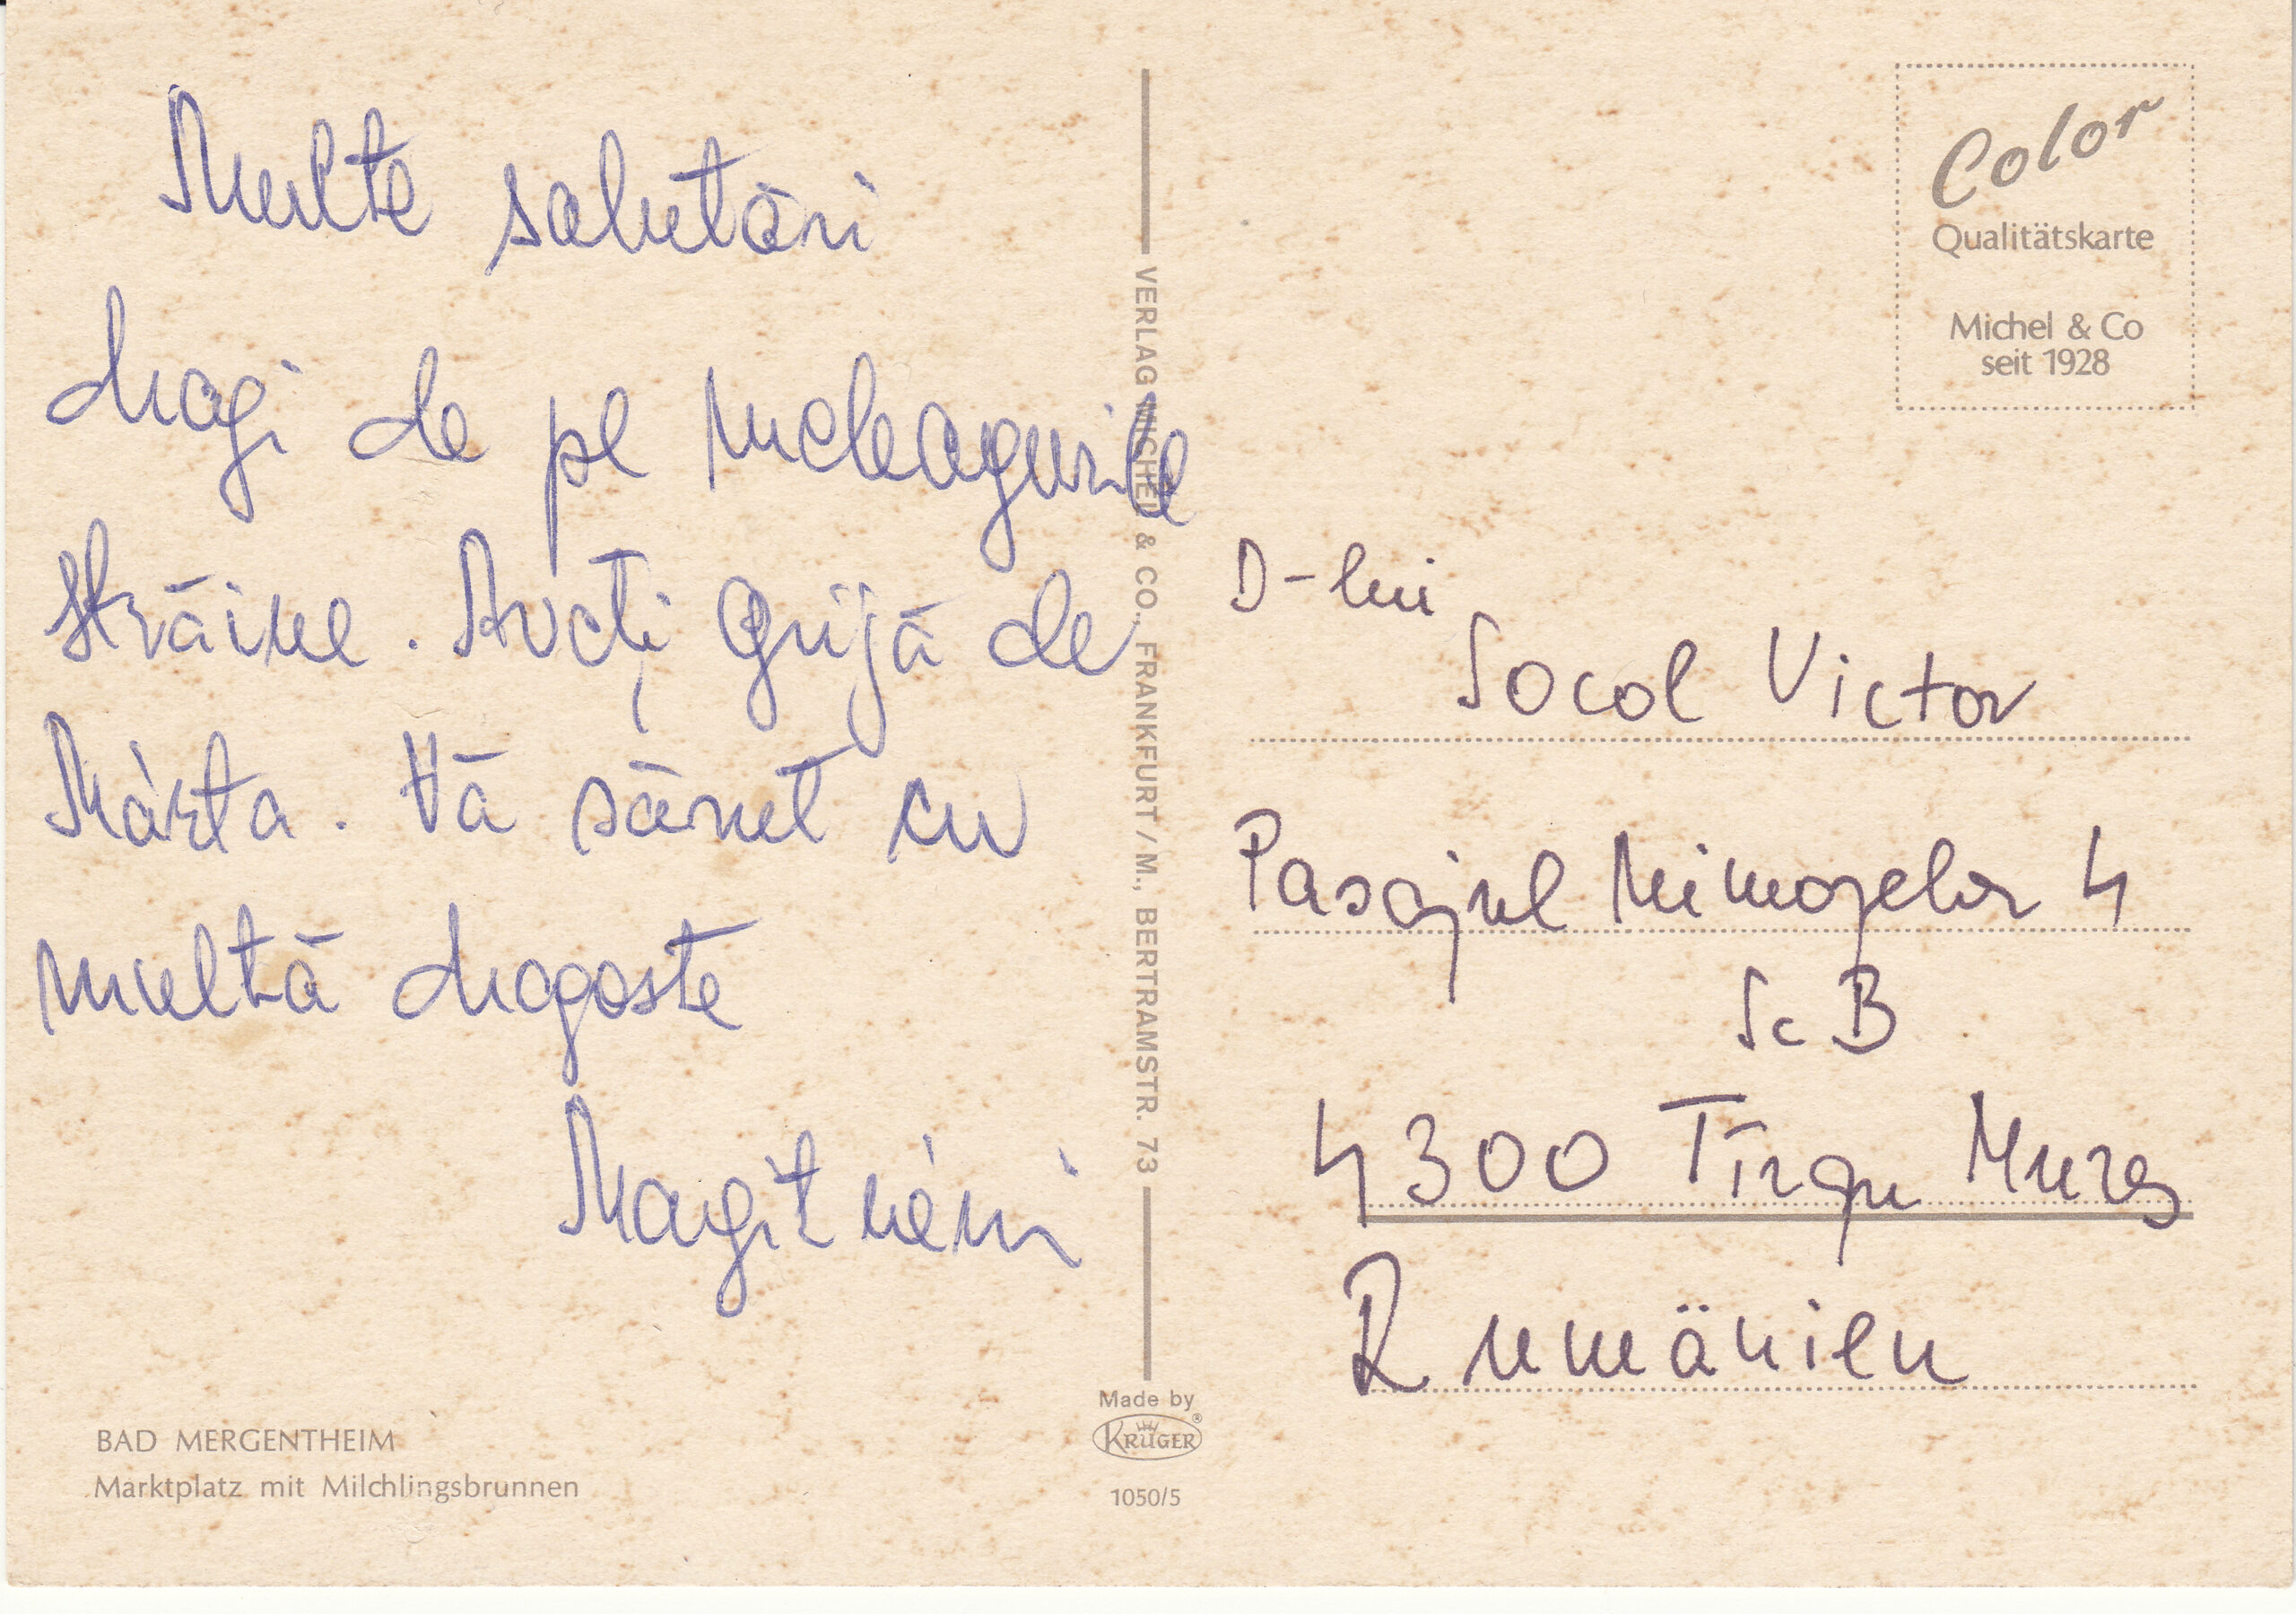 Multe salutări
dragi de pe meleagurile
străine. Aveți grijă de
Márta. Vă sărut cu
multă dragoste
Magit néni
BAD MERGENTHEIM
Marktplatz mit Milchlingsbrunnen
VERLAG MICHEL & CO., FRANKFURT / M., BERTRAMSTR. 73
Made by
KRÜGER®
1050/5
Color
Qualitätskarte
Michel & Co
seit 1928
D-lui
Socol Victor
Pasajul Mimozelor 4
Sc B
4300 Tîrgu Mureș
Rumänien